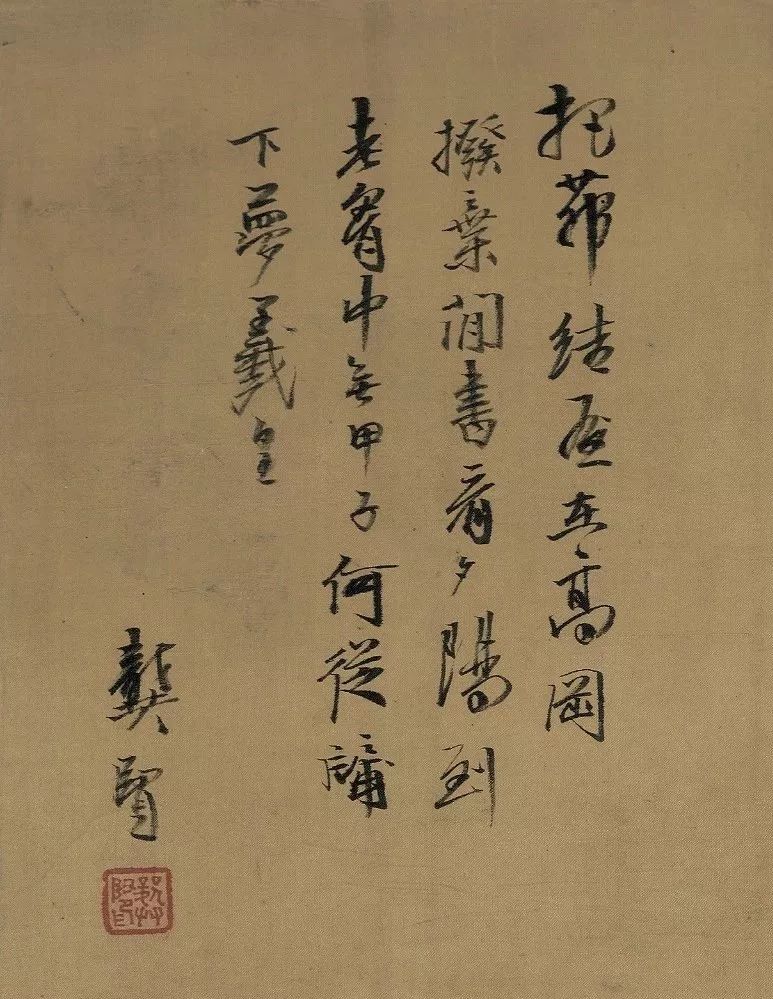 把茆結屋在高岡
撥棄閒書看夕陽到
老胷中無甲子何從牖
下夢羲皇
龔賢